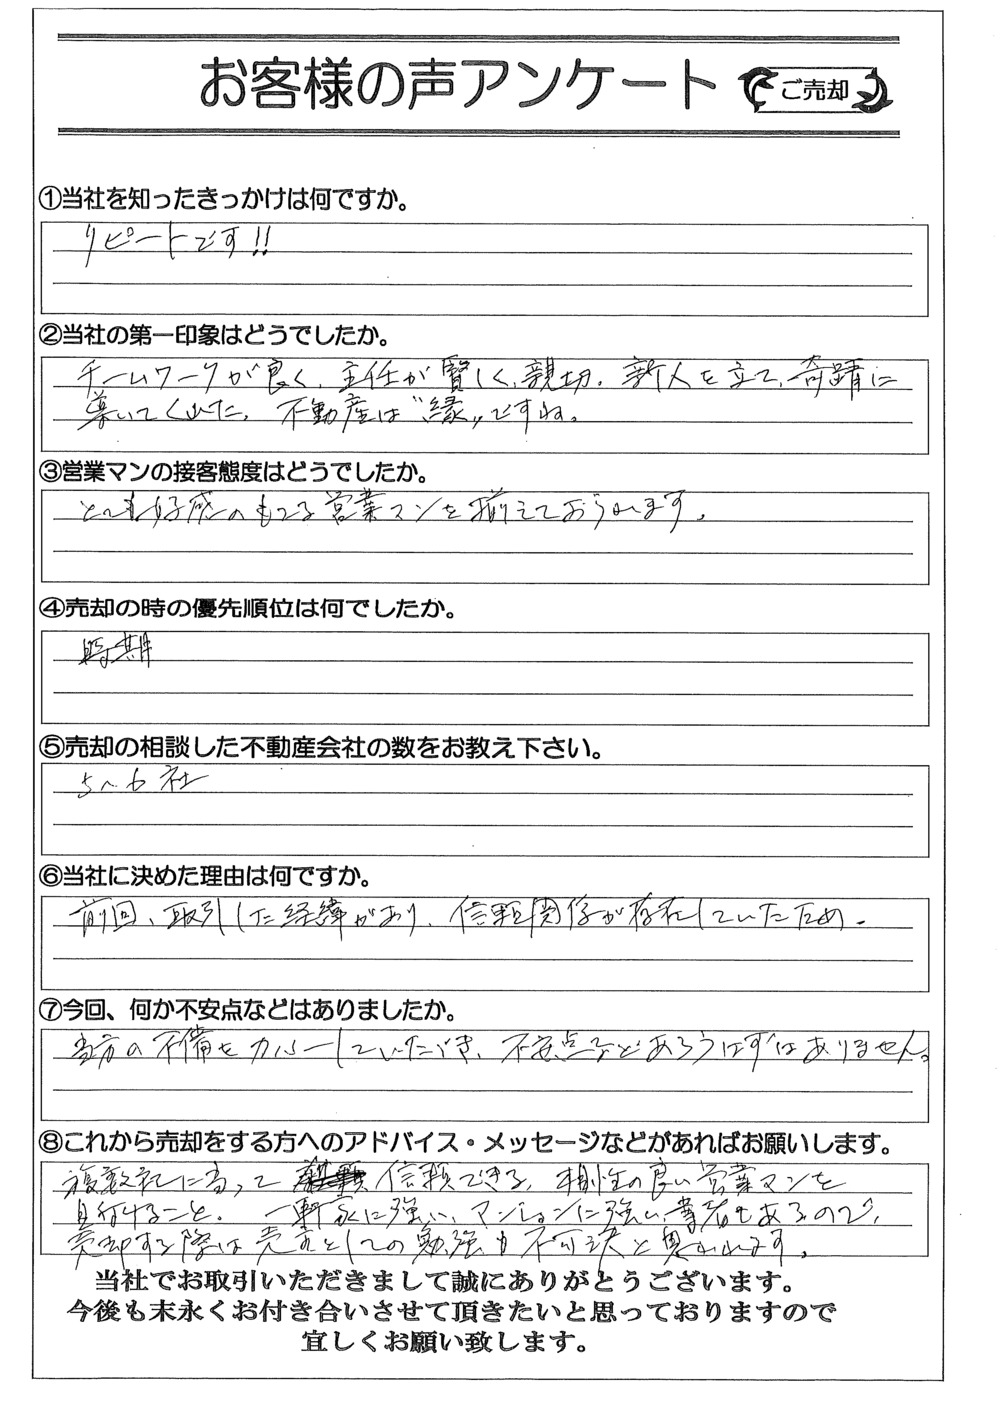 お客様の声アンケート
ご売却
①当社を知ったきっかけは何ですか。
リピートです!!
②当社の第一印象はどうでしたか。
チームワークが良く、主任が賢しく、親切。新人を立て、奇蹟に
導いてくれた。不動産は“縁”ですね。
③営業マンの接客態度はどうでしたか。
とても好感のもてる営業マンを揃えておられます。
④売却の時の優先順位は何でしたか。
時期
⑤売却の相談した不動産会社の数をお教え下さい。
5〜6社
⑥当社に決めた理由は何ですか。
前回、取引した経緯があり、信頼関係が存在していたため。
⑦今回、何か不安点などはありましたか。
当方の不備をカバーしていただき、不安点などあろうはずはありません。
⑧これから売却をする方へのアドバイス・メッセージなどがあればお願いします。
複数社に当って 信頼できる、相性の良い営業マンを
見付けること。一軒家に強い、マンションに強い業者もあるので、
売却する際は売主としての勉強も不可決と思われます。
当社でお取引いただきまして誠にありがとうございます。
今後も末永くお付き合いさせて頂きたいと思っておりますので
宜しくお願い致します。